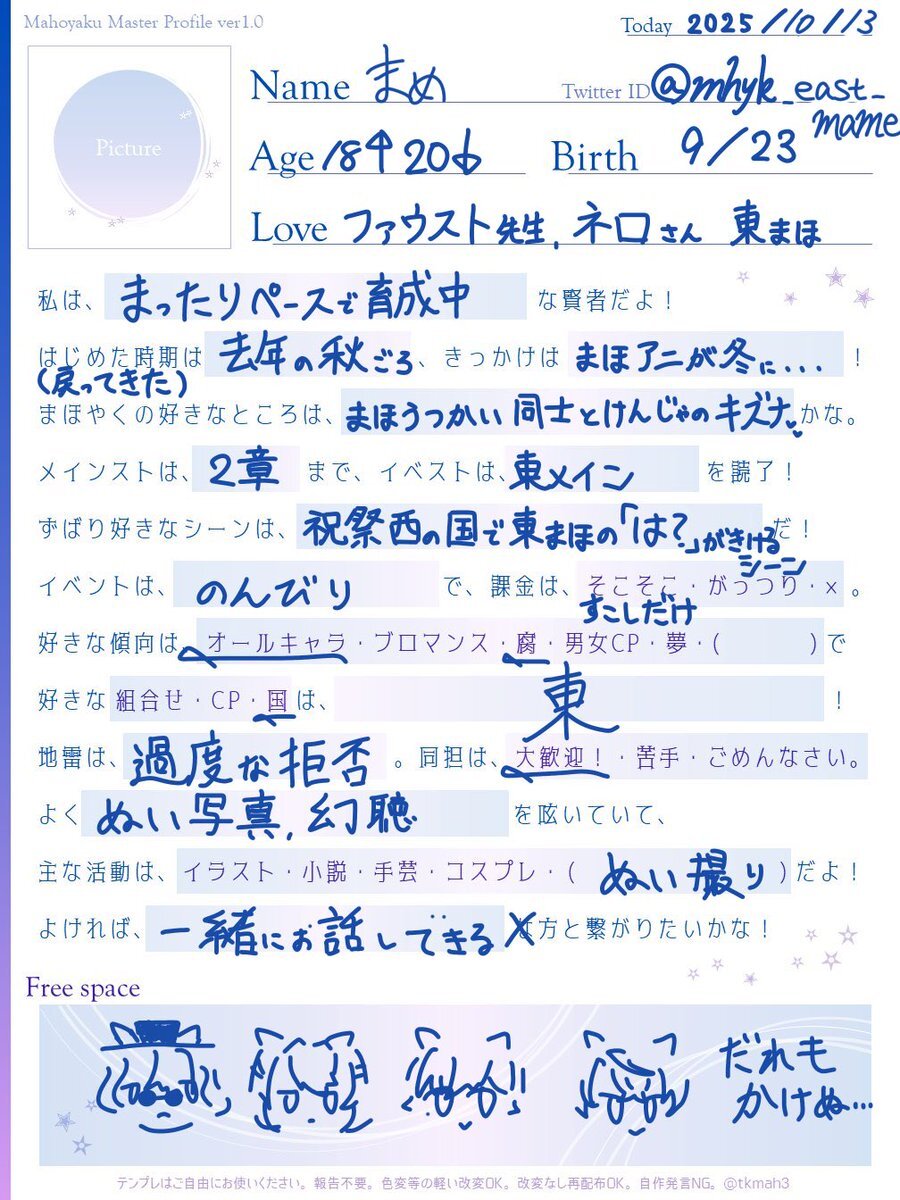 Mahoyaku Master Profile ver1.0
Today 2025/10/13
Picture
Name まめ
Twitter ID @mhyk_east_mame
Age 18↑20↓
Birth 9/23
Love ファウスト先生, ネロさん 東まほ
私は、まったりペースで育成中な賢者だよ！
はじめた時期は去年の秋ごろ、きっかけはまほアニが冬に...！
(戻ってきた)
まほやくの好きなところは、まほうつかい同士とけんじゃのキズナかな。
メインストは、2章まで、イベストは、東メインを読了！
ずばり好きなシーンは、祝祭西の国で東まほの「は?」がきけるシーンだ！
イベントは、のんびりで、課金は、そこそこ・がっつり・×。
すこしだけ
好きな傾向は、オールキャラ・ブロマンス・腐・男女CP・夢・( )で
好きな組合せ・CP・国は、東！
地雷は、過度な拒否。同担は、大歓迎！・苦手・ごめんなさい。
よくぬい写真, 幻聴を呟いていて、
主な活動は、イラスト・小説・手芸・コスプレ・(ぬい撮り)だよ！
よければ、一緒にお話してできるな方と繋がりたいかな！
Free space
だれも
かけぬ...
テンプレはご自由にお使いください。報告不要。色変等の軽い改変OK。改変なし再配布OK。自作発言NG。@tkmah3